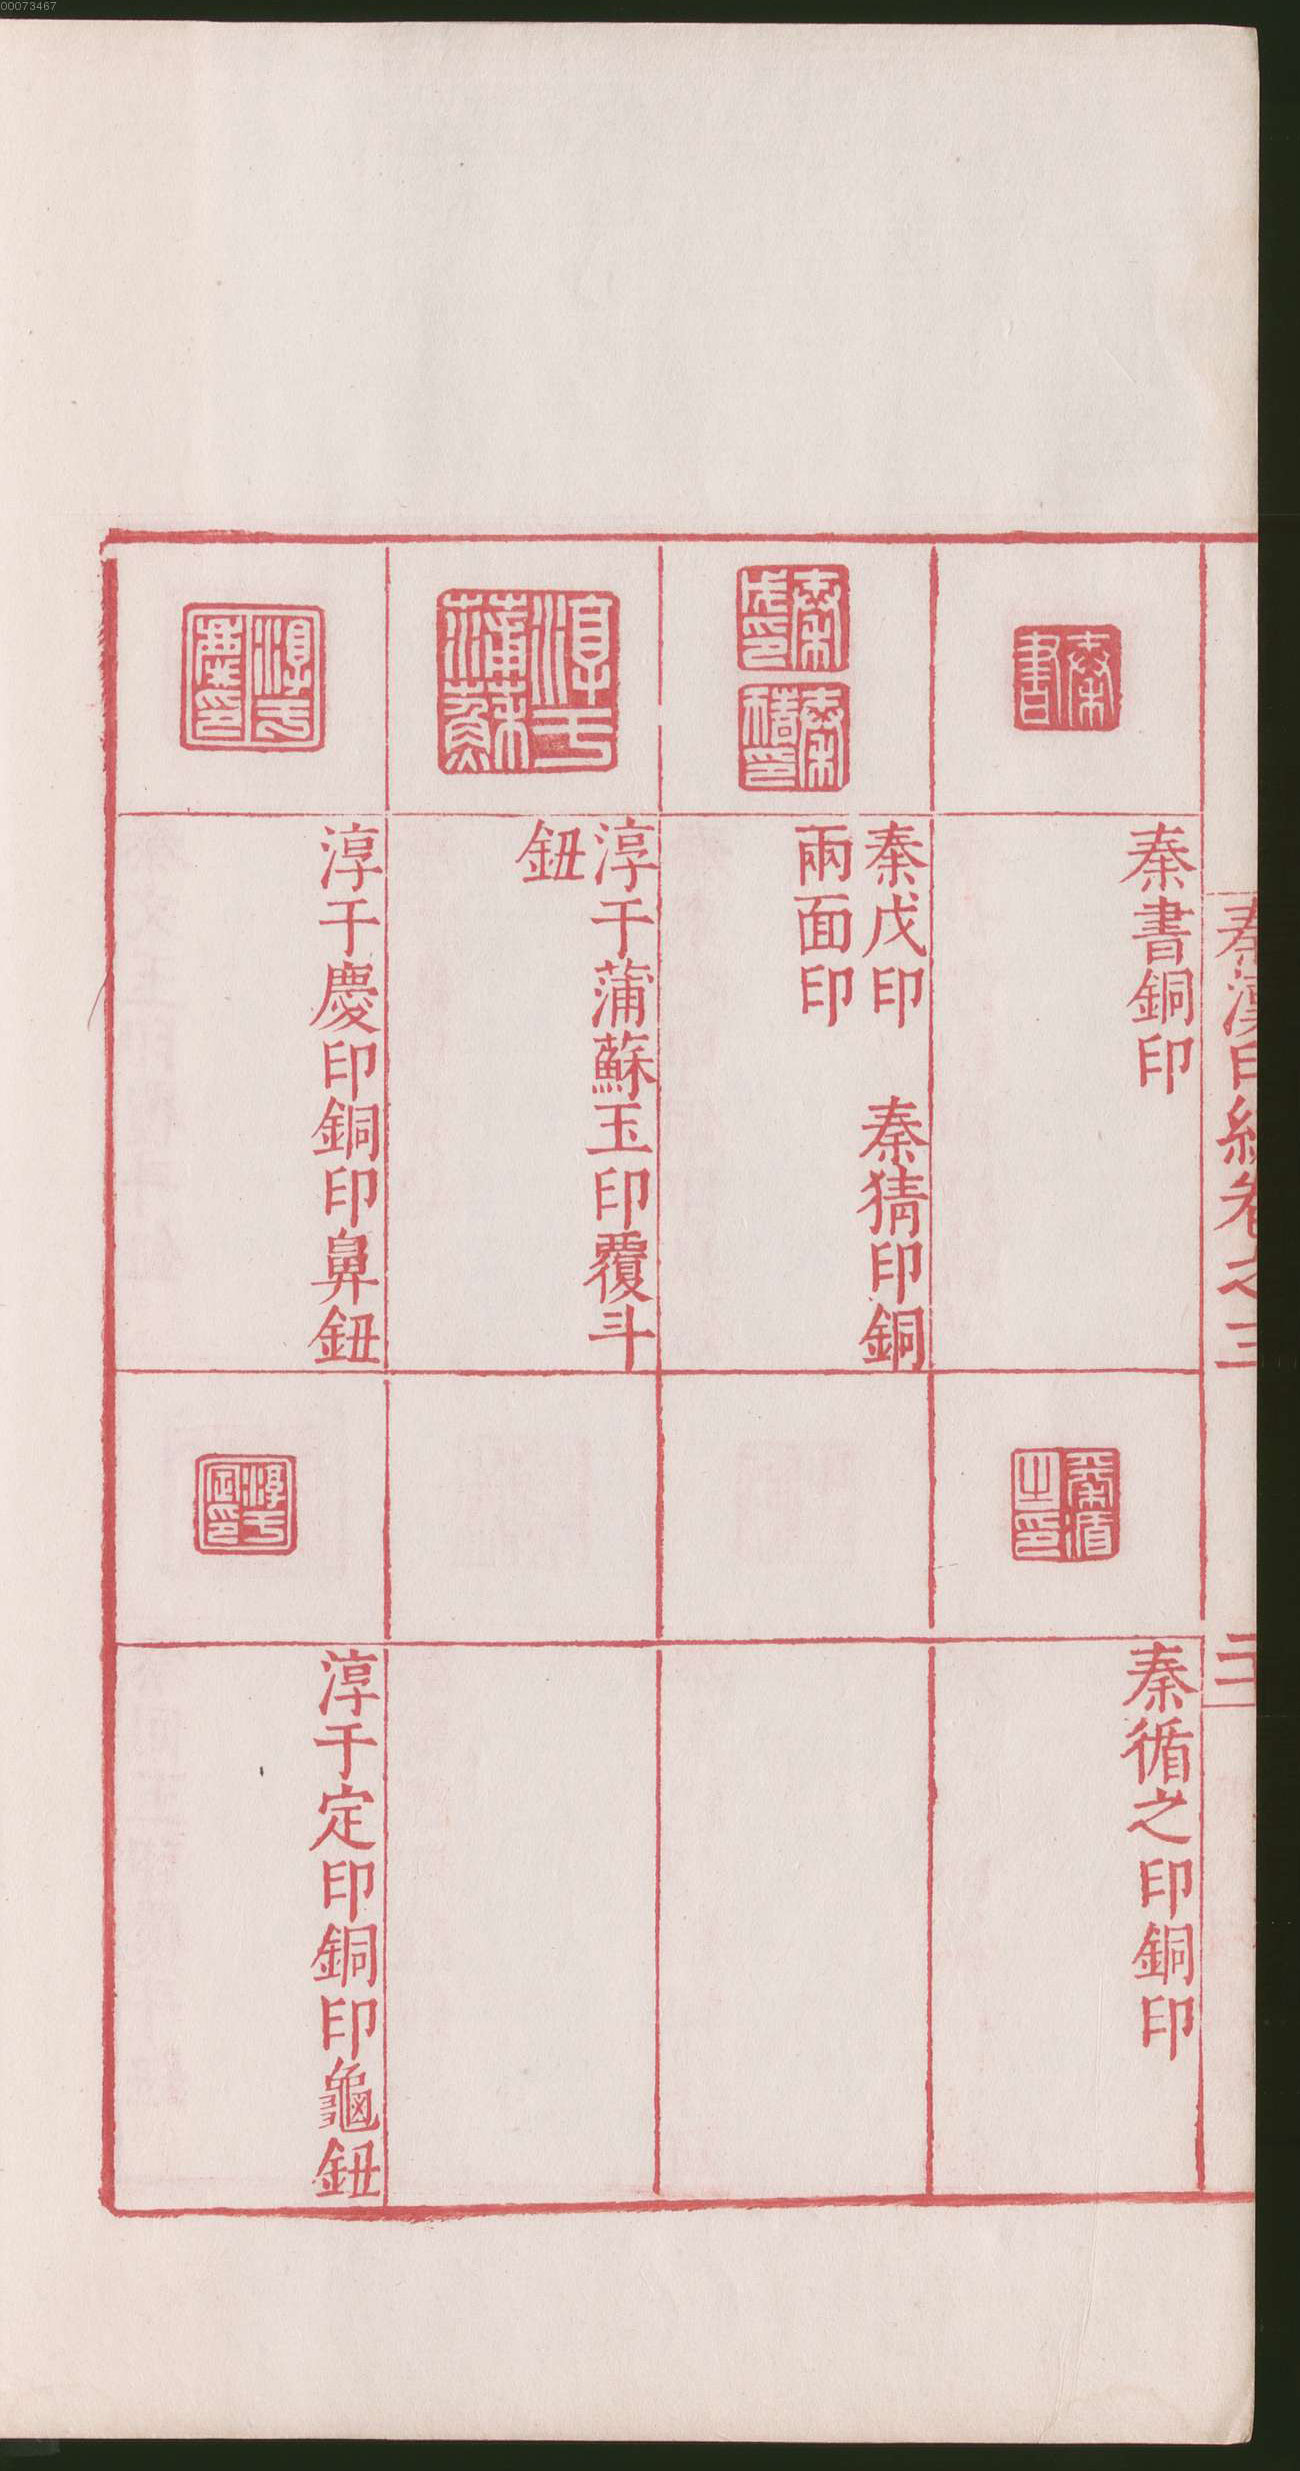 00073467
秦漢印統卷之三
二
秦書
秦書銅印
秦循之印
秦循之印銅印
秦戊印
秦猜印
秦戊印　秦猜印銅
兩面印
淳于蒲蘇
淳于蒲蘇玉印覆斗
鈕
淳于慶印
淳于慶印銅印鼻鈕
淳于定印
淳于定印銅印龜鈕